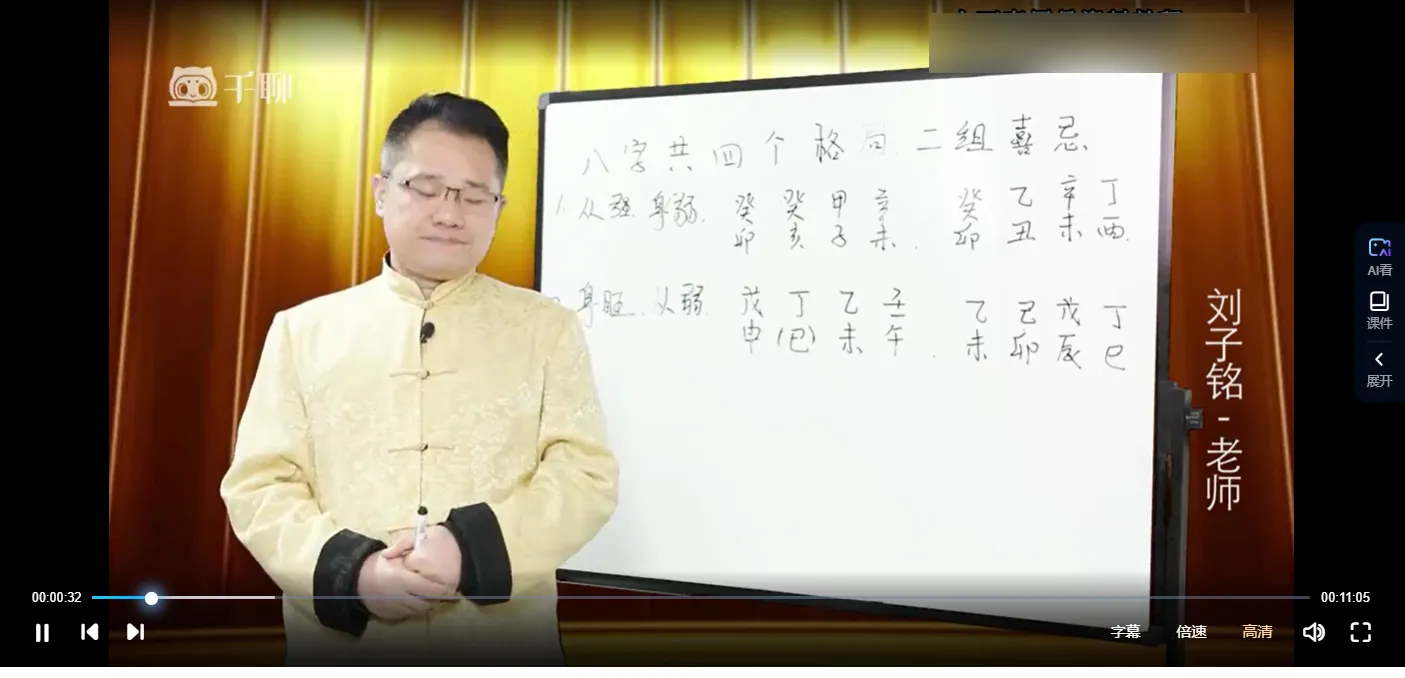 千聊
八字共四个格局.二组喜忌.
1.从强.身弱. 癸 癸 甲 辛 癸 乙 辛 丁
卯 亥 子 未. 卯 丑 未 酉.
身旺.从弱. 戊 丁 乙 壬 乙 己 戊 丁
申 (巳) 未 午. 未 卯 辰 巳
刘子铭-老师
AI看
课件
展开
00:00:32
00:11:05
字幕 倍速 高清